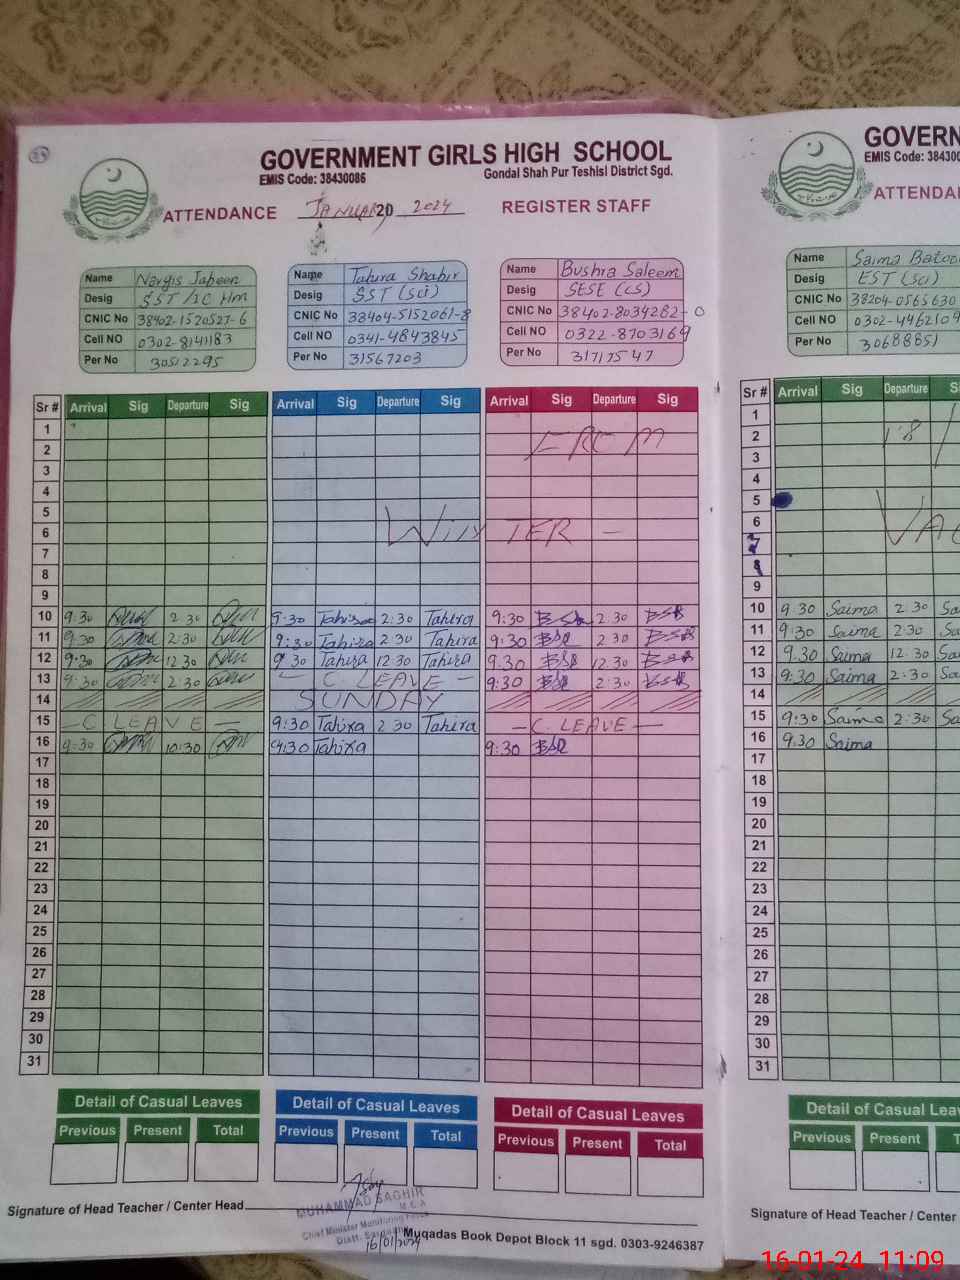 GOVERNMENT GIRLS HIGH SCHOOL
EMIS Code: 38430086
Gondal Shah Pur Teshisl District Sgd.
ATTENDANCE JANUARY 20 2024 REGISTER STAFF
Name Nargis Jabeen
Desig SST / IC Hm
CNIC No 38402-1520527-6
Cell NO 0302-8141183
Per No 30512295
Name Tahira Shabir
Desig SST (Sci)
CNIC No 38404-5152061-8
Cell NO 0341-4843845
Per No 31567203
Name Bushra Saleem
Desig SESE (CS)
CNIC No 38402-8034282-0
Cell NO 0322-8703169
Per No 31717547
Sr # Arrival Sig Departure Sig Arrival Sig Departure Sig Arrival Sig Departure Sig
1
2 FROM
3
4
5
6 WINTER -
7
8
9
10 9:30 2 30 9:30 Tahira 2:30 Tahira 9:30 BSR 2:30 BSR
11 9:30 2:30 9:30 Tahira 2:30 Tahira 9:30 BSR 2 30 BSR
12 9:30 12 30 9 30 Tahira 12:30 Tahira 9.30 BSR 12.30 BSR
13 9:30 2:30 - C. LEAVE - 9:30 BSR 2:30 BSR
14 SUNDAY
15 - C LEAVE - 9:30 Tahira 2 30 Tahira - C. LEAVE -
16 9:30 10:30 9:30 Tahira 9:30 BSR
17
18
19
20
21
22
23
24
25
26
27
28
29
30
31
Detail of Casual Leaves Detail of Casual Leaves Detail of Casual Leaves
Previous Present Total Previous Present Total Previous Present Total
Signature of Head Teacher / Center Head
MUHAMMAD SAGHIR
Chief Minister Monitoring Force
16/01/2024
Muqadas Book Depot Block 11 sgd. 0303-9246387
GOVERN
EMIS Code: 38430
ATTENDA
Name Saima Batoo
Desig EST (Sci)
CNIC No 38204-0565630
Cell NO 0302-446210
Per No 3068885
Sr # Arrival Sig Departure S
1
2 1'8 /
3
4
5
6 VAC
7
8
9
10 9 30 Saima 2 30 Sa
11 9:30 Saima 2:30 Sa
12 9.30 Saima 12:30 Sa
13 9:30 Saima 2:30 Sa
14
15 9:30 Saima 2:30 Sa
16 9.30 Saima
17
18
19
20
21
22
23
24
25
26
27
28
29
30
31
Detail of Casual Lea
Previous Present T
Signature of Head Teacher / Center
16-01-24 11:09